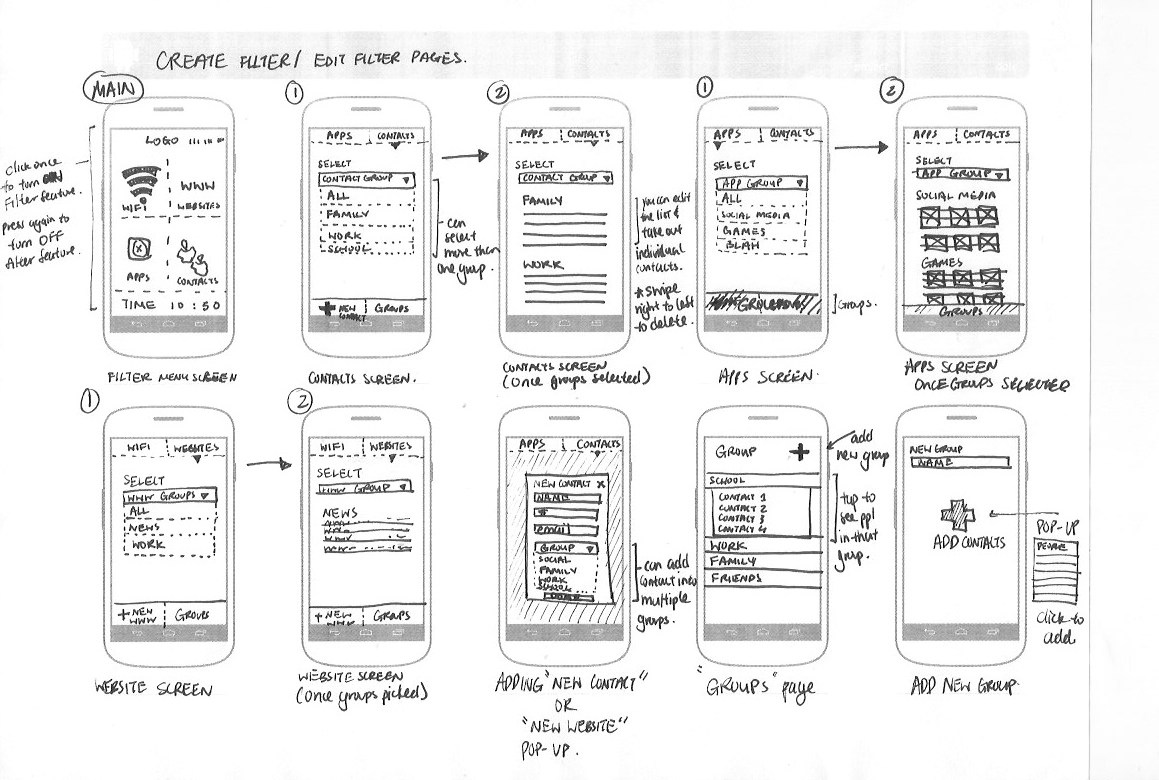 CREATE FILTER/ EDIT FILTER PAGES.
MAIN
click once
to turn ON
Filter feature.
press again to
turn OFF
filter feature.
LOGO
WIFI
WWW
WEBSITES
APPS
CONTACTS
TIME 10:50
FILTER MENU SCREEN
1
APPS CONTACTS
SELECT
CONTACT GROUP
ALL
FAMILY
WORK
SCHOOL
+ NEW CONTACT
GROUPS
can
select
more than
one group.
CONTACTS SCREEN.
2
APPS CONTACTS
SELECT
CONTACT GROUP
FAMILY
WORK
you can edit
the list &
take out
individual
contacts.
* Swipe
right to left
to delete.
CONTACTS SCREEN
(once groups selected)
1
APPS CONTACTS
SELECT
APP GROUP
ALL
SOCIAL MEDIA
GAMES
BLAH
Groups.
APPS SCREEN.
2
APPS CONTACTS
SELECT
APP GROUP
SOCIAL MEDIA
GAMES
GROUPS
APPS SCREEN
ONCE GROUPS SELECTED
1
WIFI WEBSITES
SELECT
WWW GROUPS
ALL
NEWS
WORK
+ NEW WWW
GROUPS
WEBSITE SCREEN
2
WIFI WEBSITES
SELECT
WWW GROUP
NEWS
+ NEW WWW
GROUPS
WEBSITE SCREEN
(once groups picked)
APPS CONTACTS
NEW CONTACT X
NAME
#
email
GROUP
SOCIAL
FAMILY
WORK
SCHOOL
can add
contact into
multiple
groups.
ADDING "NEW CONTACT"
OR
"NEW WEBSITE"
POP-UP.
GROUP +
SCHOOL
CONTACT 1
CONTACT 2
CONTACT 3
CONTACT 4
WORK
FAMILY
FRIENDS
add
new group
tap to
see ppl
in that
group.
"GROUPS" page
NEW GROUP
NAME
ADD CONTACTS
POP-UP
PEOPLE
click to
add
ADD NEW GROUP.